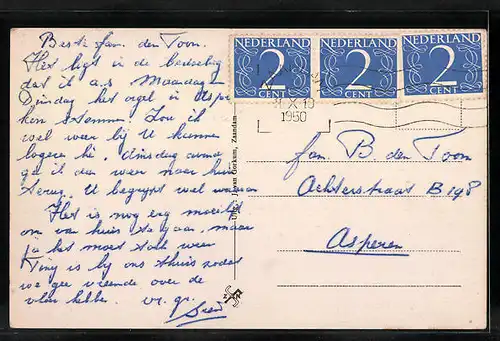 Beste fam. den Toom.
Het ligt in de bedoeling
dat ik a.s. Maandag en
Dinsdag het orgel in Aspe
ren stemmen. Zou ik
wel weer bij U kunnen
logeren hé. dinsdag avond
ga ik dan weer naar huis
terug. U begrijpt wel waarom
Het is nog erg moeilijk
om van huis te gaan, maar
ja het moet toch weer
Tiny is bij ons thuis zodat
we geen vreemde over de
vloer hebben. vr. gr.
NEDERLAND NEDERLAND NEDERLAND
2 2 2
CENT CENT CENT
X 19
1950
van Gorkum, Zaandam
fam. B den Toom
Achterstraat B 198
Asperen